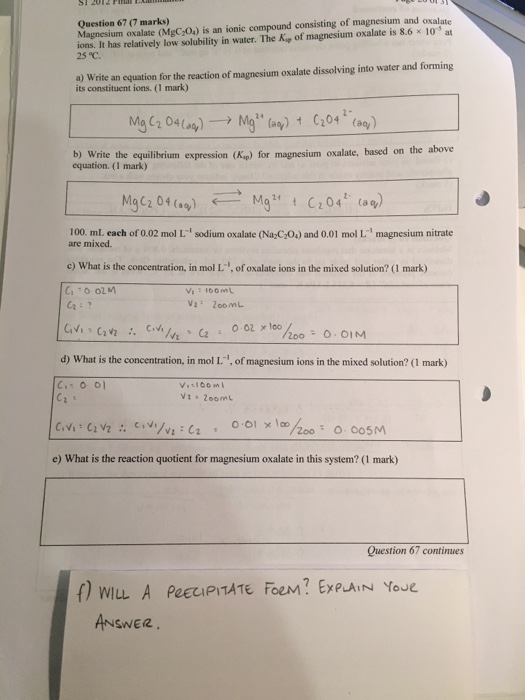 Question 67 (7 marks)
Magnesium oxalate (MgC₂O₄) is an ionic compound consisting of magnesium and oxalate
ions. It has relatively low solubility in water. The Kₛₚ of magnesium oxalate is 8.6 × 10⁻⁵ at
25 °C.
a) Write an equation for the reaction of magnesium oxalate dissolving into water and forming
its constituent ions. (1 mark)
MgC₂O₄(aq) → Mg²⁺(aq) + C₂O₄²⁻(aq)
b) Write the equilibrium expression (Kₛₚ) for magnesium oxalate, based on the above
equation. (1 mark)
MgC₂O₄(aq) ⇌ Mg²⁺ + C₂O₄²⁻(aq)
100. mL each of 0.02 mol L⁻¹ sodium oxalate (Na₂C₂O₄) and 0.01 mol L⁻¹ magnesium nitrate
are mixed.
c) What is the concentration, in mol L⁻¹, of oxalate ions in the mixed solution? (1 mark)
C₁ = 0.02M V₁ = 100mL
C₂ = ? V₂ = 200mL
C₁V₁ = C₂V₂ ∴ C₁V₁/V₂ = C₂ = 0.02 × 100/200 = 0.01M
d) What is the concentration, in mol L⁻¹, of magnesium ions in the mixed solution? (1 mark)
C₁ = 0.01 V₁ = 100ml
C₂ = V₂ = 200mL
C₁V₁ = C₂V₂ ∴ C₁V₁/V₂ = C₂ = 0.01 × 100/200 = 0.005M
e) What is the reaction quotient for magnesium oxalate in this system? (1 mark)
Question 67 continues
f) WILL A PRECIPITATE FORM? EXPLAIN YOUR
ANSWER.